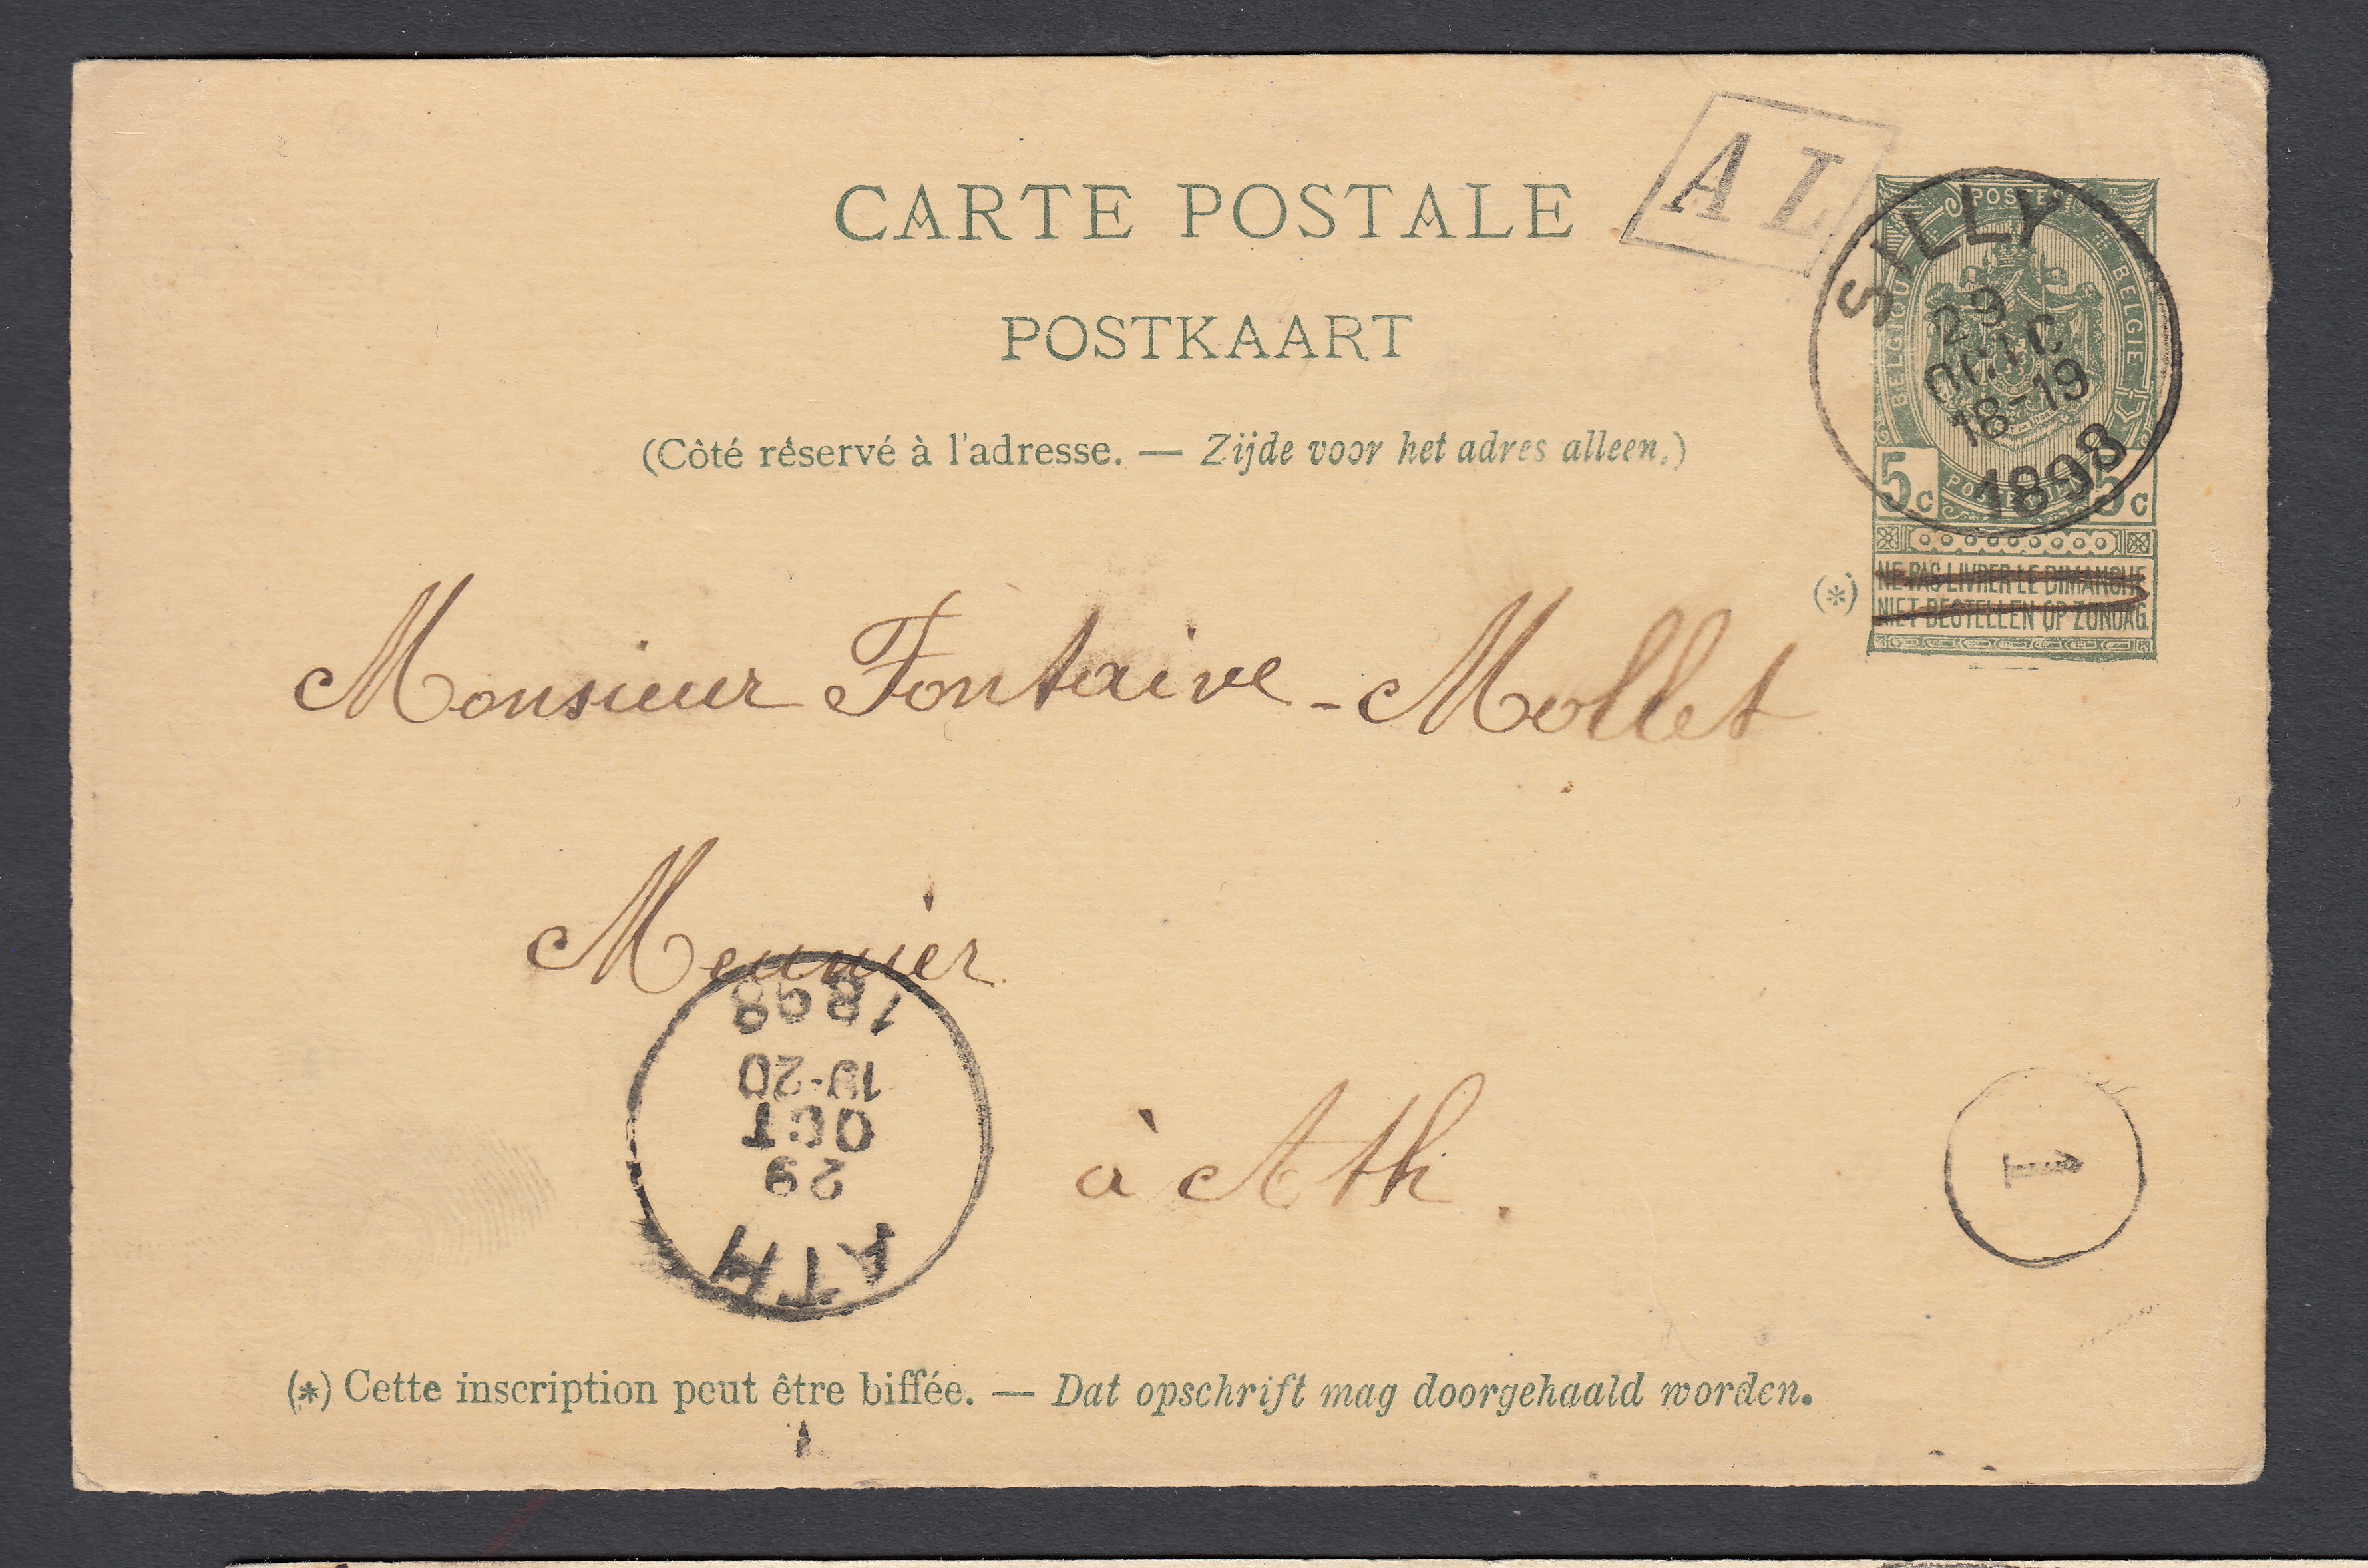 CARTE POSTALE
AL
POSTKAART
(Côté réservé à l'adresse. — Zijde voor het adres alleen.)
POSTES
BELGIQUE
BELGIE
5c
5c
SILLY
29
OCT
18-19
1898
(*)
NE PAS LIVRER LE DIMANCHE
NIET BESTELLEN OP ZONDAG.
Monsieur Fontaine-Mollet
Meunier
à Ath.
1898
19-20
OCT
29
ATH
1
(*) Cette inscription peut être biffée. — Dat opschrift mag doorgehaald worden.